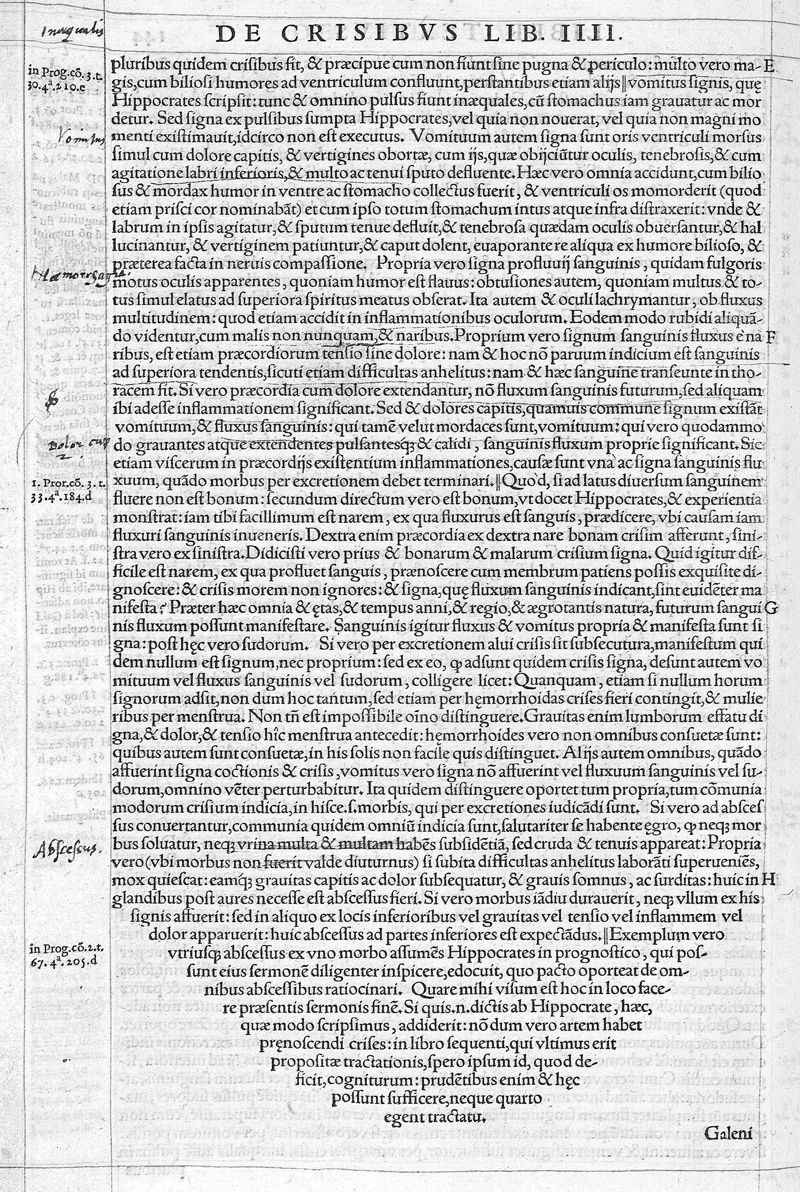 DE CRISIBVS LIB. IIII.
Inæqualis
pluribus quidem crisibus fit, & præcipue cum non fiunt sine pugna & periculo: multo vero ma- E
in Prog.cõ.3.t.
gis, cum biliosi humores ad ventriculum confluunt, perstantibus etiam alijs ‖ vomitus signis, quę
30.4ª.210.c
Hippocrates scripsit: tunc & omnino pulsus fiunt inæquales, cũ stomachus iam grauatur ac mor
detur. Sed signa ex pulsibus sumpta Hippocrates, vel quia non nouerat, vel quia non magni mo
Vomitus
menti existimauit, idcirco non est executus. Vomituum autem signa sunt oris ventriculi morsus
simul cum dolore capitis, & vertigines obortæ, cum ijs, quæ obijciũtur oculis, tenebrosis, & cum
agitatione labri inferioris, & multo ac tenui sputo defluente. Hæc vero omnia accidunt, cum bilio
sus & mordax humor in ventre ac stomacho collectus fuerit, & ventriculi os momorderit (quod
etiam prisci cor nominabãt) et cum ipso totum stomachum intus atque infra distraxerit: vnde &
labrum in ipsis agitatur, & sputum tenue defluit, & tenebrosa quædam oculis obuersantur, & hal
lucinantur, & vertiginem patiuntur, & caput dolent, euaporante re aliqua ex humore bilioso, &
præterea facta in neruis compassione. Propria vero signa profluuij sanguinis, quidam fulgoris
Hæmorragia.
motus oculis apparentes, quoniam humor est flauus: obtusiones autem, quoniam multus & to-
tus simul elatus ad superiora spiritus meatus obserat. Ita autem & oculi lachrymantur, ob fluxus
multitudinem: quod etiam accidit in inflammationibus oculorum. Eodem modo rubidi aliquã-
do videntur, cum malis non nunquam, & naribus. Proprium vero signum sanguinis fluxus e na F
ribus, est etiam præcordiorum tensio sine dolore: nam & hoc nõ paruum indicium est sanguinis
ad superiora tendentis, sicuti etiam difficultas anhelitus: nam & hæc sanguine transeunte in tho-
racem fit. Si vero præcordia cum dolore extendantur, nõ fluxum sanguinis futurum, sed aliquam
ibi adesse inflammationem significant. Sed & dolores capitis, quamuis commune signum existãt
vomituum, & fluxus sanguinis: qui tamẽ velut mordaces sunt, vomituum: qui vero quodammo
Dolor cap
do grauantes atque extendentes pulsantesq̃ & calidi, sanguinis fluxum proprie significant. Sic
etiam viscerum in præcordijs existentium inflammationes, causæ sunt vna ac signa sanguinis flu
1. Pror.cõ. 3. t.
xuum, quãdo morbus per excretionem debet terminari. ‖ Quod, si ad latus diuersum sanguinem
33.4ª.184.d
fluere non est bonum: secundum directum vero est bonum, vt docet Hippocrates, & experientia
monstrat: iam tibi facillimum est narem, ex qua fluxurus est sanguis, prædicere, vbi causam iam
fluxuri sanguinis inueneris. Dextra enim præcordia ex dextra nare bonam crisim afferunt, sini-
stra vero ex sinistra. Didicisti vero prius & bonarum & malarum crisium signa. Quid igitur dif-
ficile est narem, ex qua profluet sanguis, prænoscere cum membrum patiens possis exquisite di-
gnoscere: & crisis morem non ignores: & signa, quę fluxum sanguinis indicant, sint euidẽter ma
nifesta? Præter hæc omnia & ętas, & tempus anni, & regio, & ægrotantis natura, futurum sangui G
nis fluxum possunt manifestare. Sanguinis igitur fluxus & vomitus propria & manifesta sunt si
gna: post hęc vero sudorum. Si vero per excretionem alui crisis sit subsecutura, manifestum qui
dem nullum est signum, nec proprium: sed ex eo, ꝙ adsunt quidem crisis signa, desunt autem vo
mituum vel fluxus sanguinis vel sudorum, colligere licet: Quanquam, etiam si nullum horum
signorum adsit, non dum hoc tantum, sed etiam per hęmorrhoidas crises fieri contingit, & mulie
ribus per menstrua. Non tñ est impossibile oĩno distinguere. Grauitas enim lumborum effatu di
gna, & dolor, & tensio hĩc menstrua antecedit: hęmorrhoides vero non omnibus consuetæ sunt:
quibus autem sunt consuetæ, in his solis non facile quis distinguet. Alijs autem omnibus, quãdo
affuerint signa coctionis & crisis, vomitus vero signa nõ affuerint vel fluxuum sanguinis vel su-
dorum, omnino vẽter perturbabitur. Ita quidem distinguere oportet tum propria, tum cõmunia
modorum crisium indicia, in hisce .s. morbis, qui per excretiones iudicãdi sunt. Si vero ad absces
sus conuertantur, communia quidem omniũ indicia sunt, salutariter se habente ęgro, ꝙ neq; mor
Abscessus.
bus soluatur, neq; vrina multa & multam habẽs subsidẽtiã, sed cruda & tenuis appareat: Propria
vero (vbi morbus non fuerit valde diuturnus) si subita difficultas anhelitus laborãti superueniẽs,
mox quiescat: eamq; grauitas capitis ac dolor subsequatur, & grauis somnus, ac surditas: huic in H
glandibus post aures necesse est abscessus fieri. Si vero morbus iãdiu durauerit, neq; vllum ex his
signis affuerit: sed in aliquo ex locis inferioribus vel grauitas vel tensio vel inflammem vel
dolor apparuerit: huic abscessus ad partes inferiores est expectãdus. ‖ Exemplum vero
in Prog.cõ.2.t.
vtriusq; abscessus ex vno morbo assumẽs Hippocrates in prognostico, qui pos-
67.4ª.205.d
sunt eius sermonẽ diligenter inspicere, edocuit, quo pacto oporteat de om-
nibus abscessibus ratiocinari. Quare mihi visum est hoc in loco face-
re præsentis sermonis finẽ. Si quis .n. dictis ab Hippocrate, hæc,
quæ modo scripsimus, addiderit: nõ dum vero artem habet
pręnoscendi crises: in libro sequenti, qui vltimus erit
propositæ tractationis, spero ipsum id, quod de-
ficit, cogniturum: prudẽtibus enim & hęc
possunt sufficere, neque quarto
egent tractatu.
Galeni